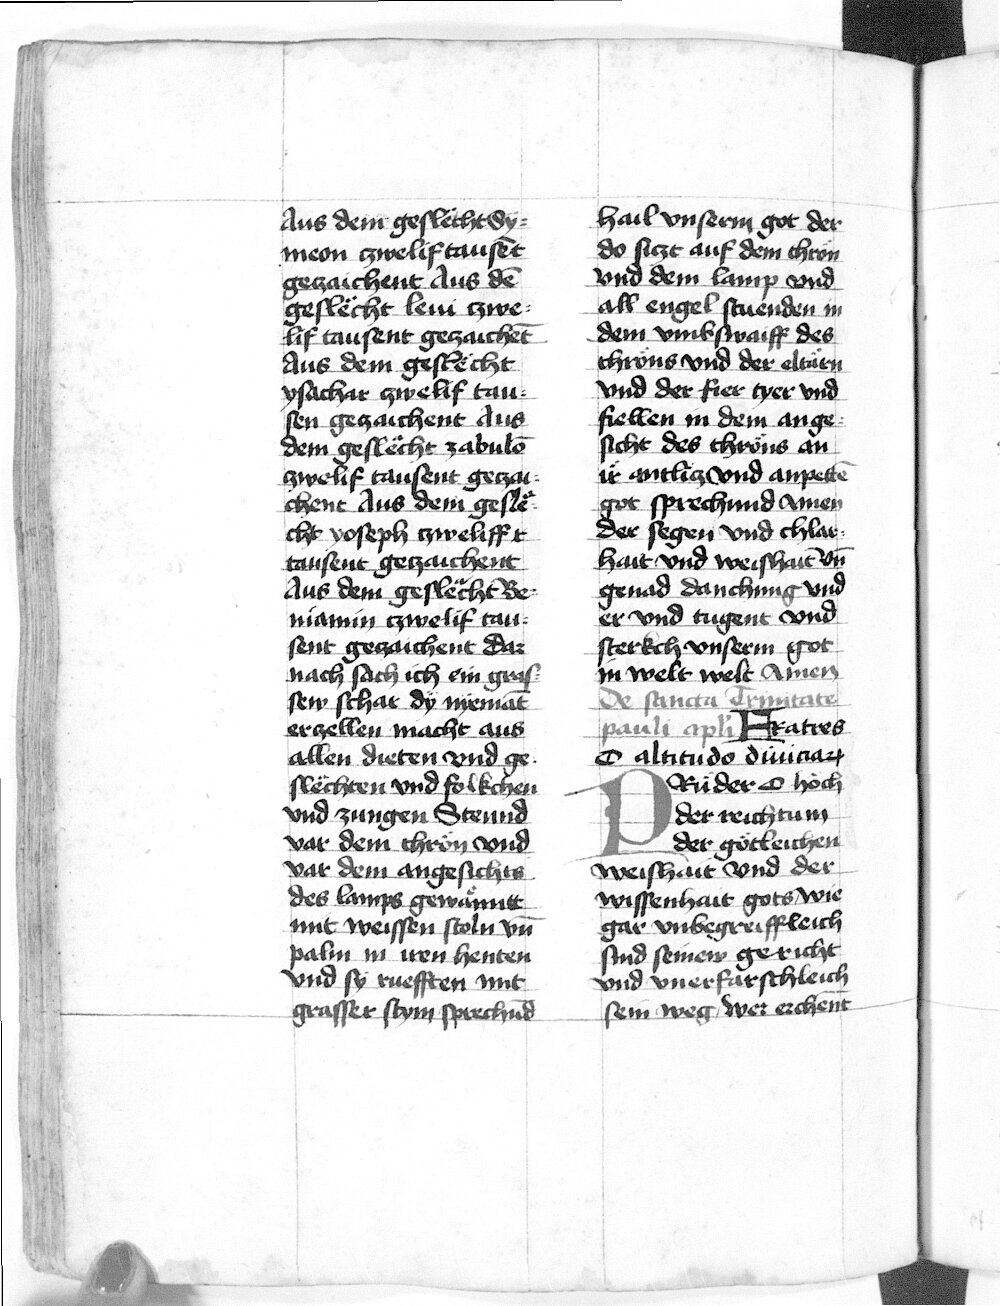 Aus dem geslëcht Sy-
meon zwelif tausēt
gezaichent Aus dē
geslëcht leui czwe-
lif tausent gezaichēt
Aus dem geslëcht
ysachar zwelif tau-
sen gezaichent Aus
dem geslëcht zabulō
zwelif tausent gezai-
chent Aus dem geslë-
cht yoseph czweliff t
tausent gezaichent
Aus dem geslëcht Be-
niamin czwelif tau-
sent gezaichent Dar
nach sach ich ein gras-
sew schar dÿ niemāt
erzellen macht aus
allen dieten vnd ge-
slëchten vnd folkchen
vnd zungen Steund
var dem thrön vnd
var dem angesichts
des lamps gewänntt
mit weissen stoln vn̄
palm in iren henten
vnd sy ruefften mit
grasser stym sprechūd
hail vnserm got der
do siczt auf dem thrön
vnd dem lamp vnd
all engel stuenden in
dem vmbswaiff des
thröns vnd der eltärn
vnd der fier tyer vnd
fiellen in dem ange-
sicht des thröns an
ir antlicz vnd anpettē
got sprechund Amen
der segen vnd chlar-
hait vnd weishait vn̄
genad danchung vnd
er vnd tugent vnd
sterkch vnserm got
in welt welt Amen
De sancta Trinitate
pauli apli Fratres
O altitudo diuiciaꝝ
PRüder O höch
der reichtum
der götleichen
weishait vnd der
wissenhait gots wie
gar vnbegreiffleich
sind seinew gericht
vnd vnerfarschleich
sein weg wer erchent